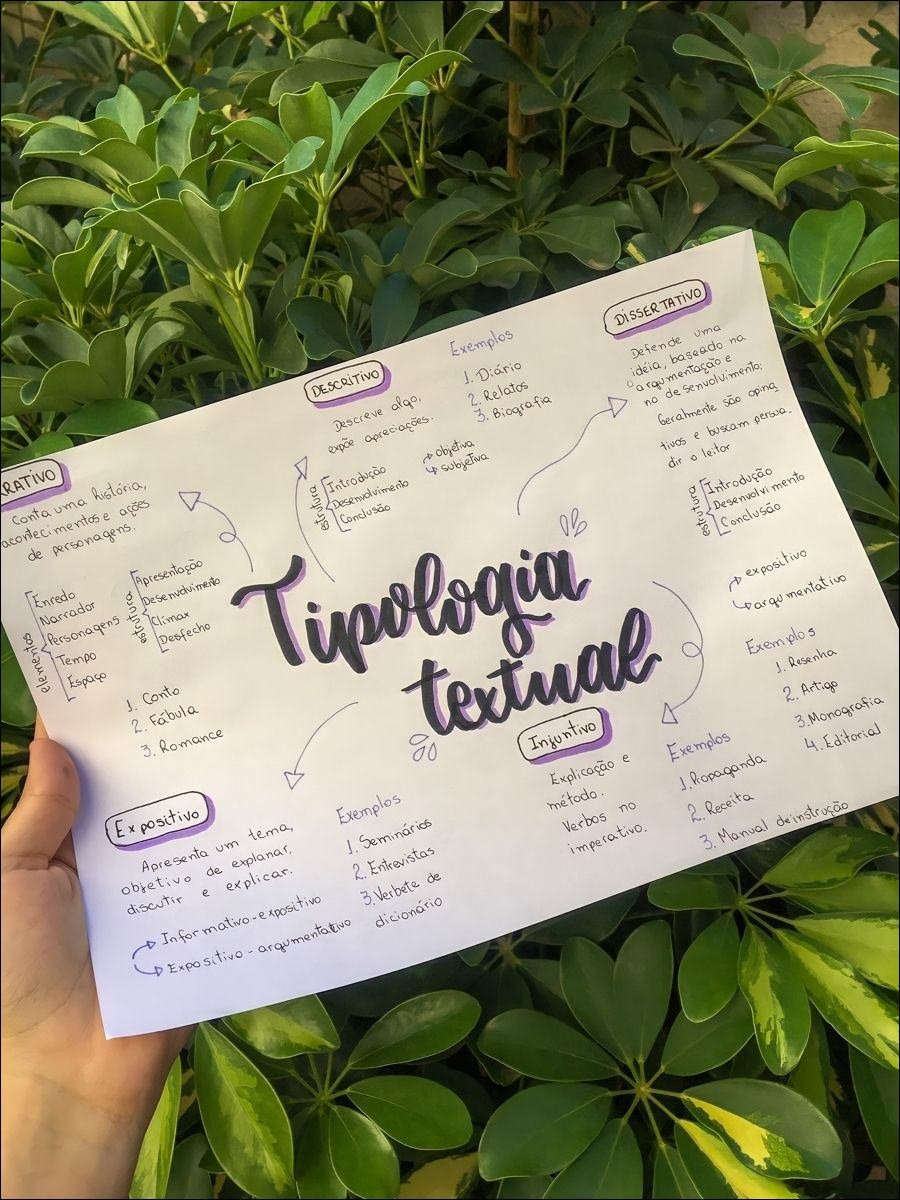 Tipologia
textual
RRATIVO
Conta uma história,
acontecimentos e ações
de personagens.
elementos
Enredo
Narrador
Personagens
Tempo
Espaço
estrutura
Apresentação
Desenvolvimento
Clímax
Desfecho
1. Conto
2. Fábula
3. Romance
DESCRITIVO
Descreve algo,
expõe apreciações.
estrutura
Introdução
Desenvolvimento
Conclusão
objetiva
subjetiva
Exemplos
1. Diário
2. Relatos
3. Biografia
DISSERTATIVO
Defende uma
idéia, baseado na
argumentação e
no desenvolvimento.
Geralmente são opina
tivos e buscam persua-
dir o leitor
estrutura
Introdução
Desenvolvimento
Conclusão
expositivo
argumentativo
Exemplos
1. Resenha
2. Artigo
3. Monografia
4. Editorial
Expositivo
Apresenta um tema,
objetivo de explanar,
discutir e explicar.
Informativo-expositivo
Expositivo-argumentativo
Exemplos
1. Seminários
2. Entrevistas
3. Verbete de
dicionário
Injuntivo
Explicação e
método.
Verbos no
imperativo.
Exemplos
1. Propaganda
2. Receita
3. Manual de instrução